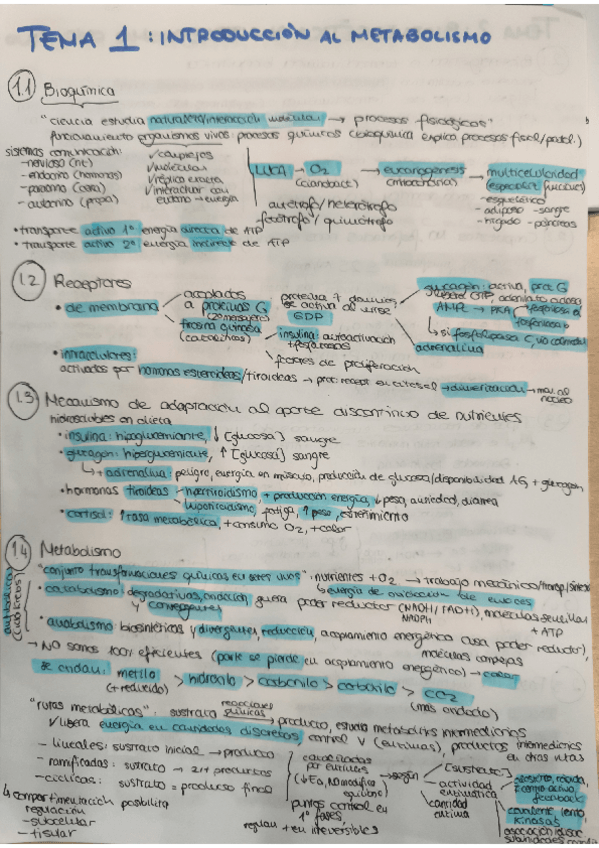 TEMA 1: INTRODUCCIÓN AL METABOLISMO
1.1 Bioquímica
"ciencia estudia naturaleza/interacción molecular → procesos fisiológicos"
funcionamiento organismos vivos: procesos químicos (bioquímica explica procesos fisiol/patol.)
sistemas comunicación:
- nervioso (nt)
- endocrino (hormonas)
- paracrino (cerca)
- autocrino (propia)
✓complejos
✓moléculas
✓réplica exacta
✓interactuar con entorno → energía
LUCA → O2 (cianobact) → eucariogénesis (mitocondria) → multicelularidad especializ (funciones)
- esquelético
- adiposo - sangre
- hígado - páncreas
autótrofo/heterótrofo
- fotótrofo/quimiótrofo
• transporte activo 1º energía directa de ATP
• transporte activo 2º energía indirecta de ATP
1.2 Receptores
• de membrana
acoplados a proteínas G
tirosina quinasa
proteína 7 dominios, se activa al unirse GDP
insulina: autoactivación + fosforilados
factores de proliferación
glucagón: activa, prot G
AMPc → PKA
↳ si fosforilasa C, no
adrenalina
• intracelulares:
activados por hormonas esteroideas/tiroideas → prot: recept en citosol → dimerización → mov. al núcleo
1.3 Mecanismo de adaptación al aporte discontinuo de nutrientes
hidrosolubles en
• insulina: hipoglucemiante, ↓ [glucosa] sangre
• glucagón: hiperglucemiante, ↑ [glucosa] sangre
↳ + adrenalina: peligro, energía en músculo, producción de glucosa/disponibilidad AG, + glucagón
• hormonas tiroideas
hipertiroidismo, + producción energía, ↓ peso, ansiedad, diarrea
hipotiroidismo, fatiga, ↑ peso, estreñimiento
• cortisol: ↑ tasa metabólica, + consumo O2, + calor
1.4 Metabolismo
"conjunto transformaciones químicas en seres vivos" · nutrientes + O2 → trabajo mecánico/transp/síntesis
↳ energía de oxidación de enlaces
anfibólicas (ciclo Krebs)
• catabolismo: degradativas, oxidación, genera poder reductor (NADH/FADH), moléculas sencillas
y convergentes
NADPH
+ ATP
• anabolismo: biosintéticos y divergentes, reducción, acoplamiento energético (usa poder reductor),
moléculas complejas
→ No somos 100% eficientes (parte se pierde en acoplamiento energético) → calor
metilo > hidroxilo > carbonilo > carboxilo > CO2
(+ reducido)
(más oxidado)
"rutas metabólicas": sustrato reacciones químicas → producto, estudia metabolitos intermediarios
✓libera energía en cantidades discretas, control V (enzimas), productos intermedios en otras rutas
- lineales: sustrato inicial → producto
- ramificadas: sustrato → 2 ó + productos
- cíclicas: sustrato = producto final
catalizadas por enzimas
(↓Ea, NO modifica equilibrio)
→ según
[sustrato]
- actividad enzimática
- cantidad enzima
alostérico, rápida,
feedback
covalente, lento,
kinasas
↳ compartimentación posibilita regulación
- subcelular
- tisular
puntos control en 1ª fases,
regulan + en irreversibles